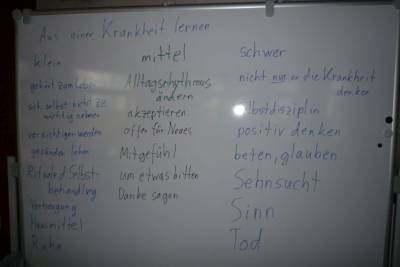 Aus einer Krankheit lernen
klein
gehört zum Leben
sich selbst nicht zu
wichtig nehmen
vorsichtiger werden
gesünder leben
Ritual d. Selbst-
behandlung
Hausmittel
Ruhe
mittel
Alltagsrhythmus
ändern
akzeptieren
offen für Neues
Mitgefühl
um etwas bitten
Danke sagen
schwer
nicht nur an die Krankheit
denken
Selbstdisziplin
positiv denken
beten, glauben
Sehnsucht
Sinn
Tod